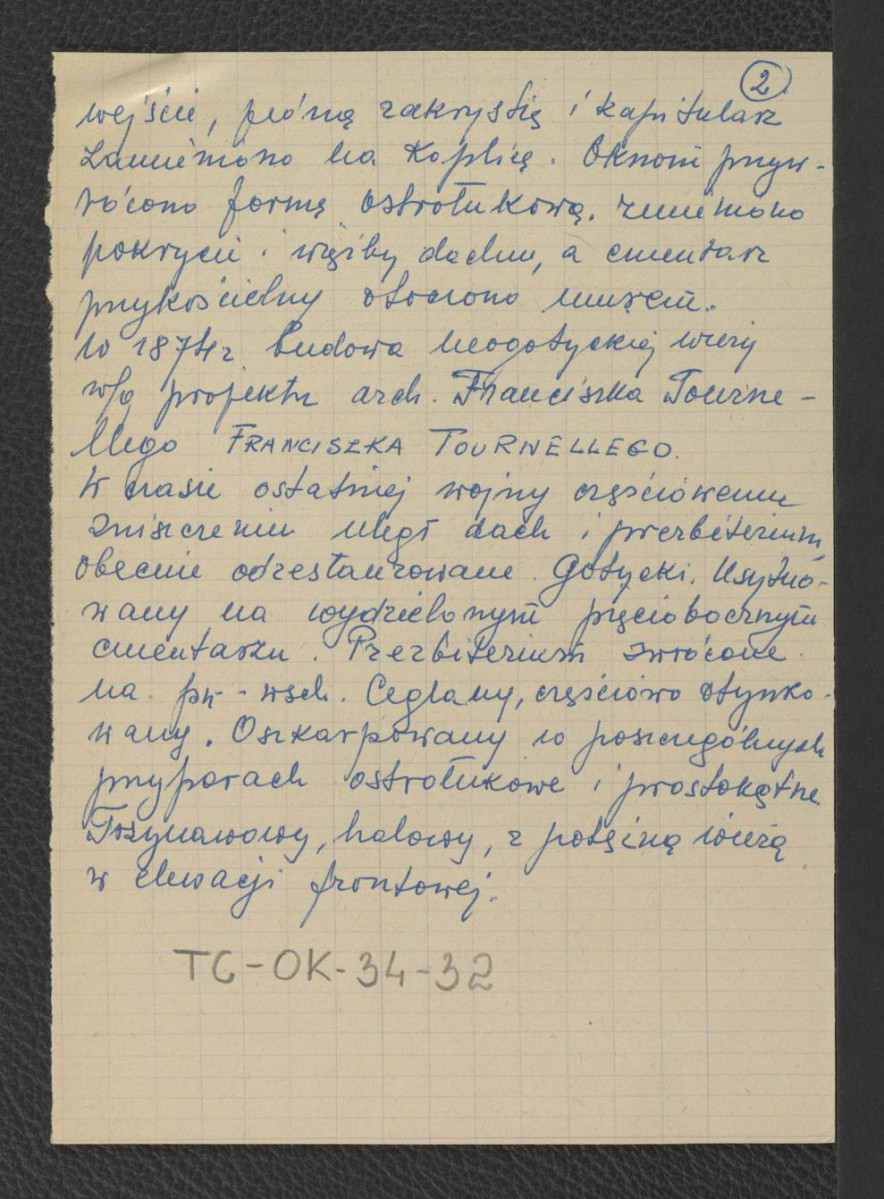 2
wejście, późną zakrystię i kapitularz
zamieniono na Kaplicę. Oknom przyw-
rócono formę ostrołukową, zmieniono
pokrycie i więźby dachu, a cmentarz
przykościelny otoczono murem.
W 1874 r budowa neogotyckiej wieży
w/g projektu arch. Franciszka Tourne-
llego FRANCISZKA TOURNELLEGO.
W czasie ostatniej wojny częściowemu
zniszczeniu uległ dach i prezbiterium,
obecnie odrestaurowane. Gotycki. Usytuo-
wany na wydzielonym pięciobocznym
cmentarzu. Prezbiterium zwrócone
na płn-wsch. Ceglany, częściowo otynko-
wany. Oszkarpowany w poszczególnych
przyporach ostrołukowe i prostokątne.
Trzynawowy, halowy, z potężną wieżą
w elewacji frontowej.
TG-OK-34-32